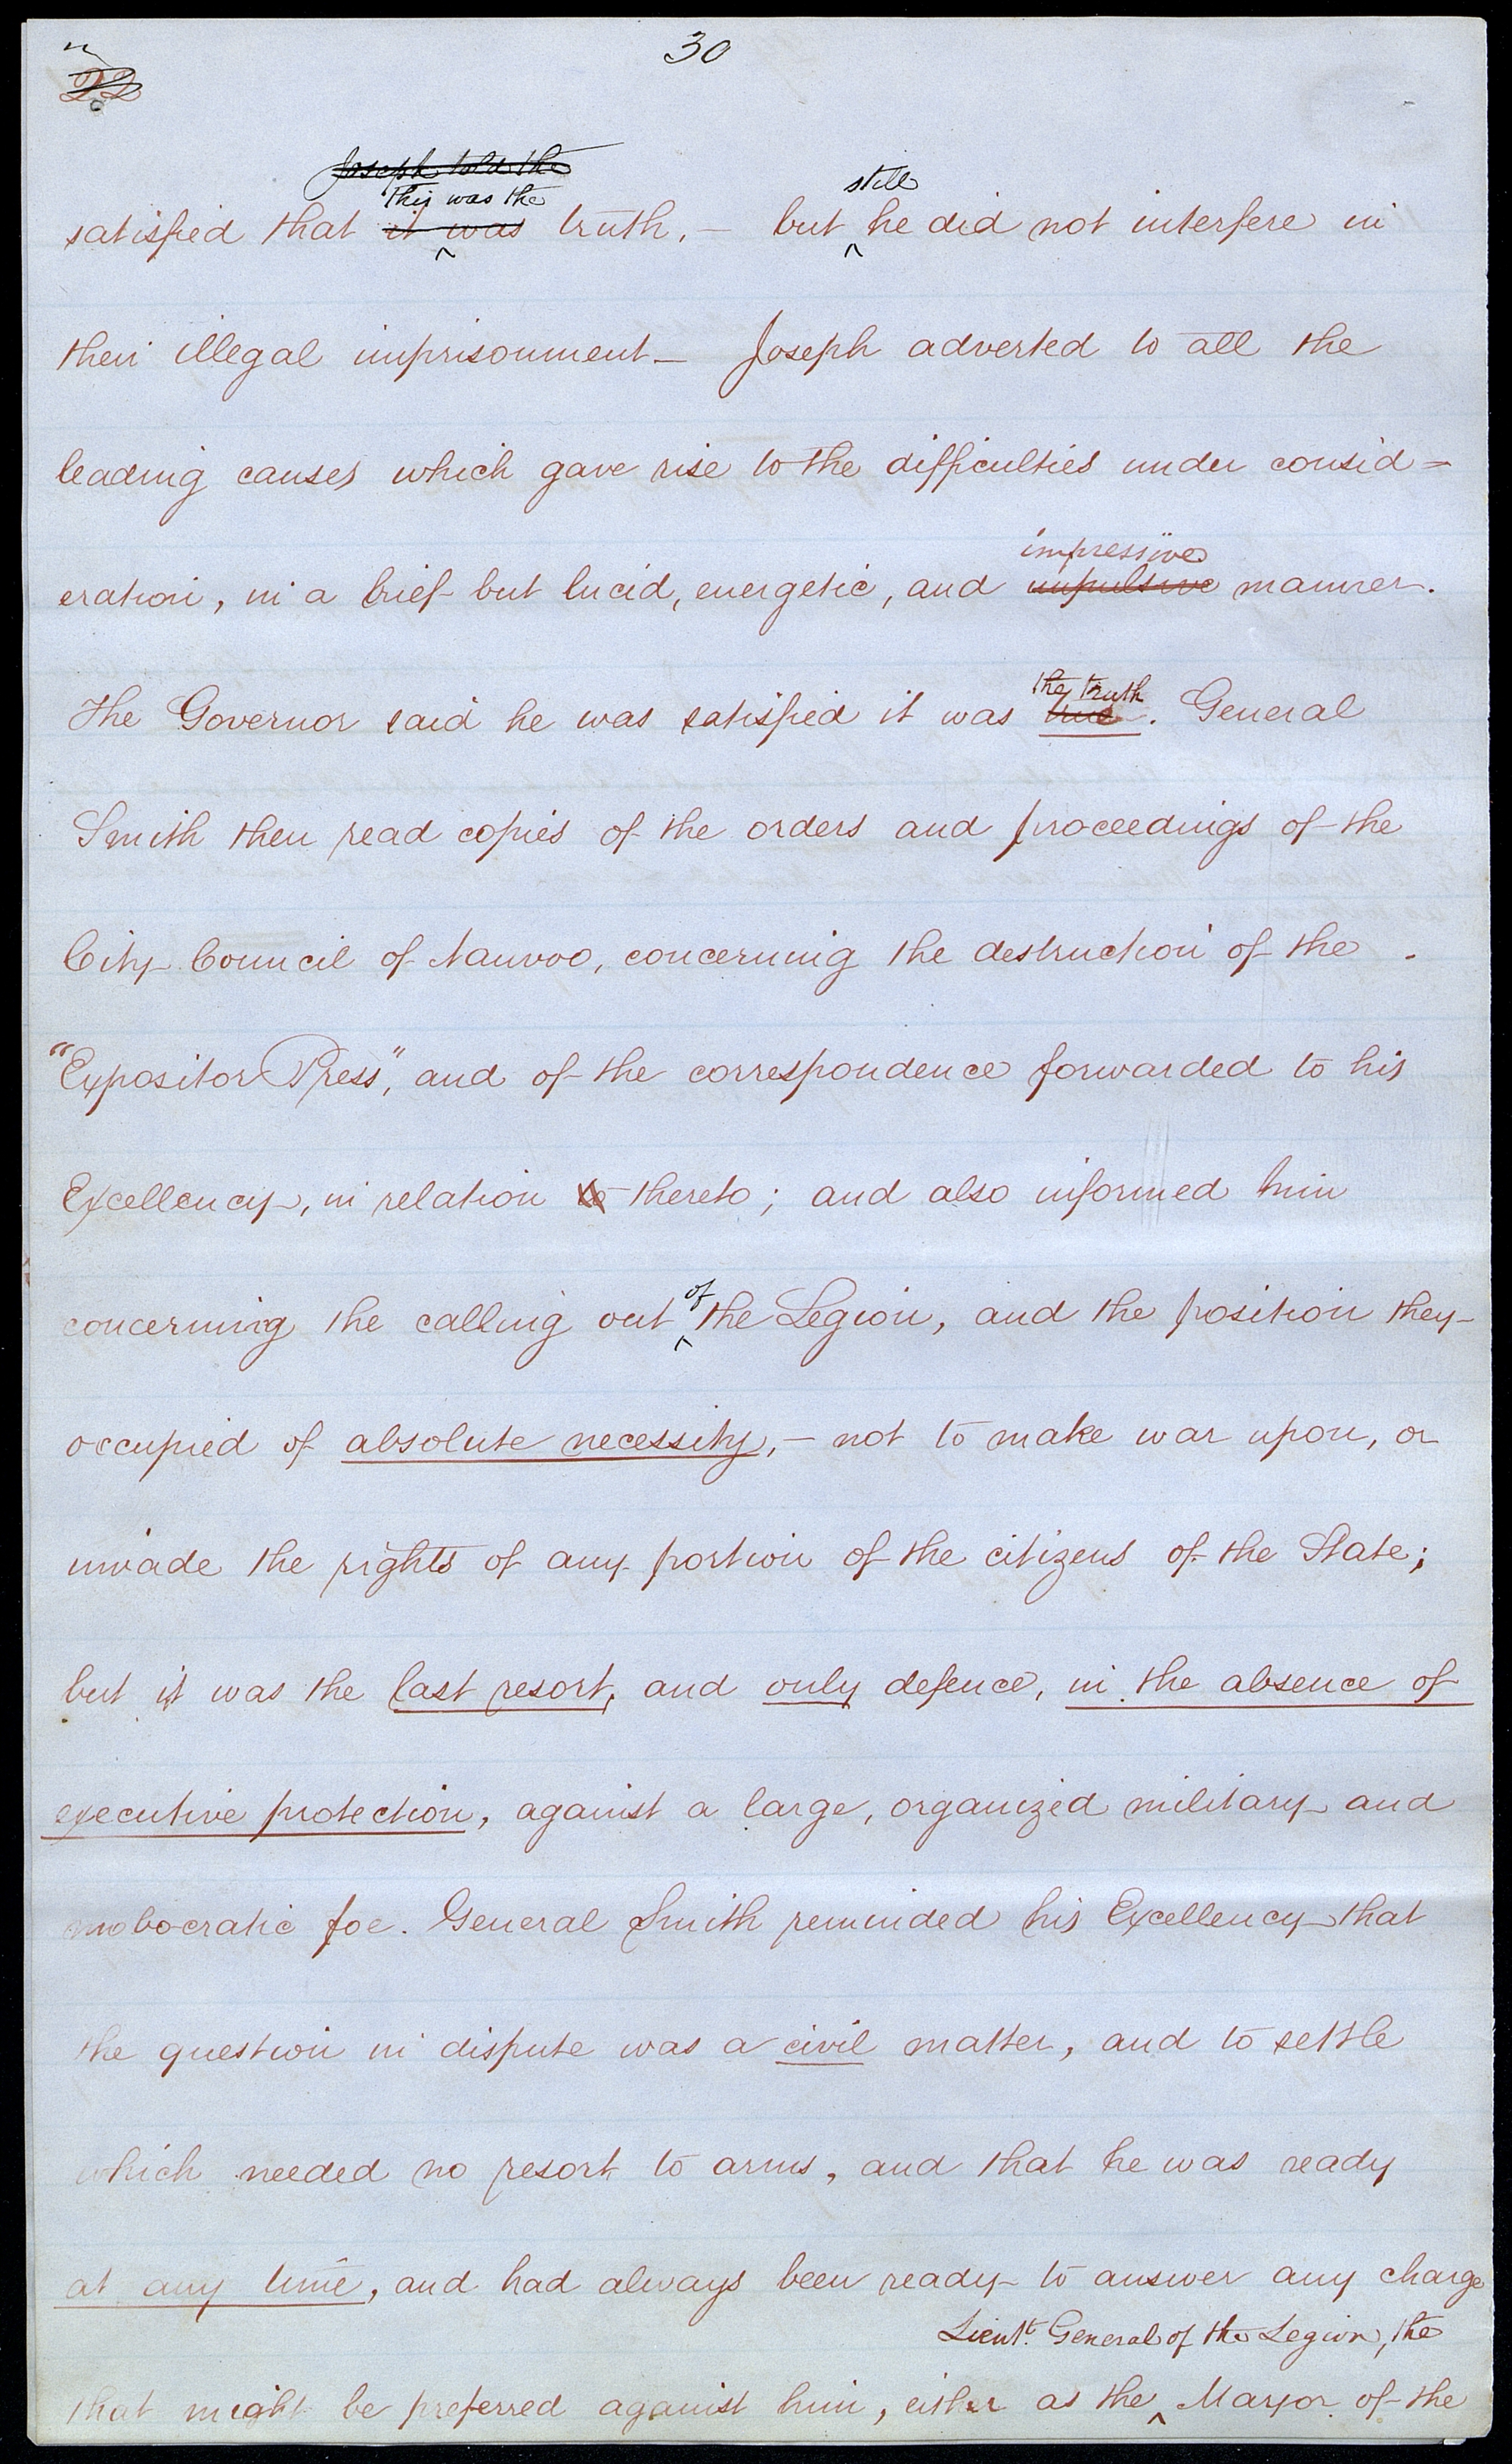 30
22
Joseph told the
This was the
still
satisfied that it was truth, — but he did not interfere in
their illegal imprisonment — Joseph adverted to all the
leading causes which gave rise to the difficulties under consid=
impressive
eration, in a brief but lucid, energetic, and impulsive manner.
the truth
The Governor said he was satisfied it was true. General
Smith then read copies of the orders and proceedings of the
City Council of Nauvoo, concerning the destruction of the
"Expositor Press", and of the correspondence forwarded to his
Excellency, in relation to thereto; and also informed him
of
concerning the calling out the Legion, and the position they
occupied of absolute necessity, — not to make war upon, or
invade the rights of any portion of the citizens of the State;
but it was the last resort, and only defence, in the absence of
executive protection, against a large, organized military and
mobocratic foe. General Smith reminded his Excellency that
the question in dispute was a civil matter, and to settle
which needed no resort to arms, and that he was ready
at any time, and had always been ready to answer any charge
Lieut. General of the Legion, the
that might be preferred against him, either as the Mayor of the